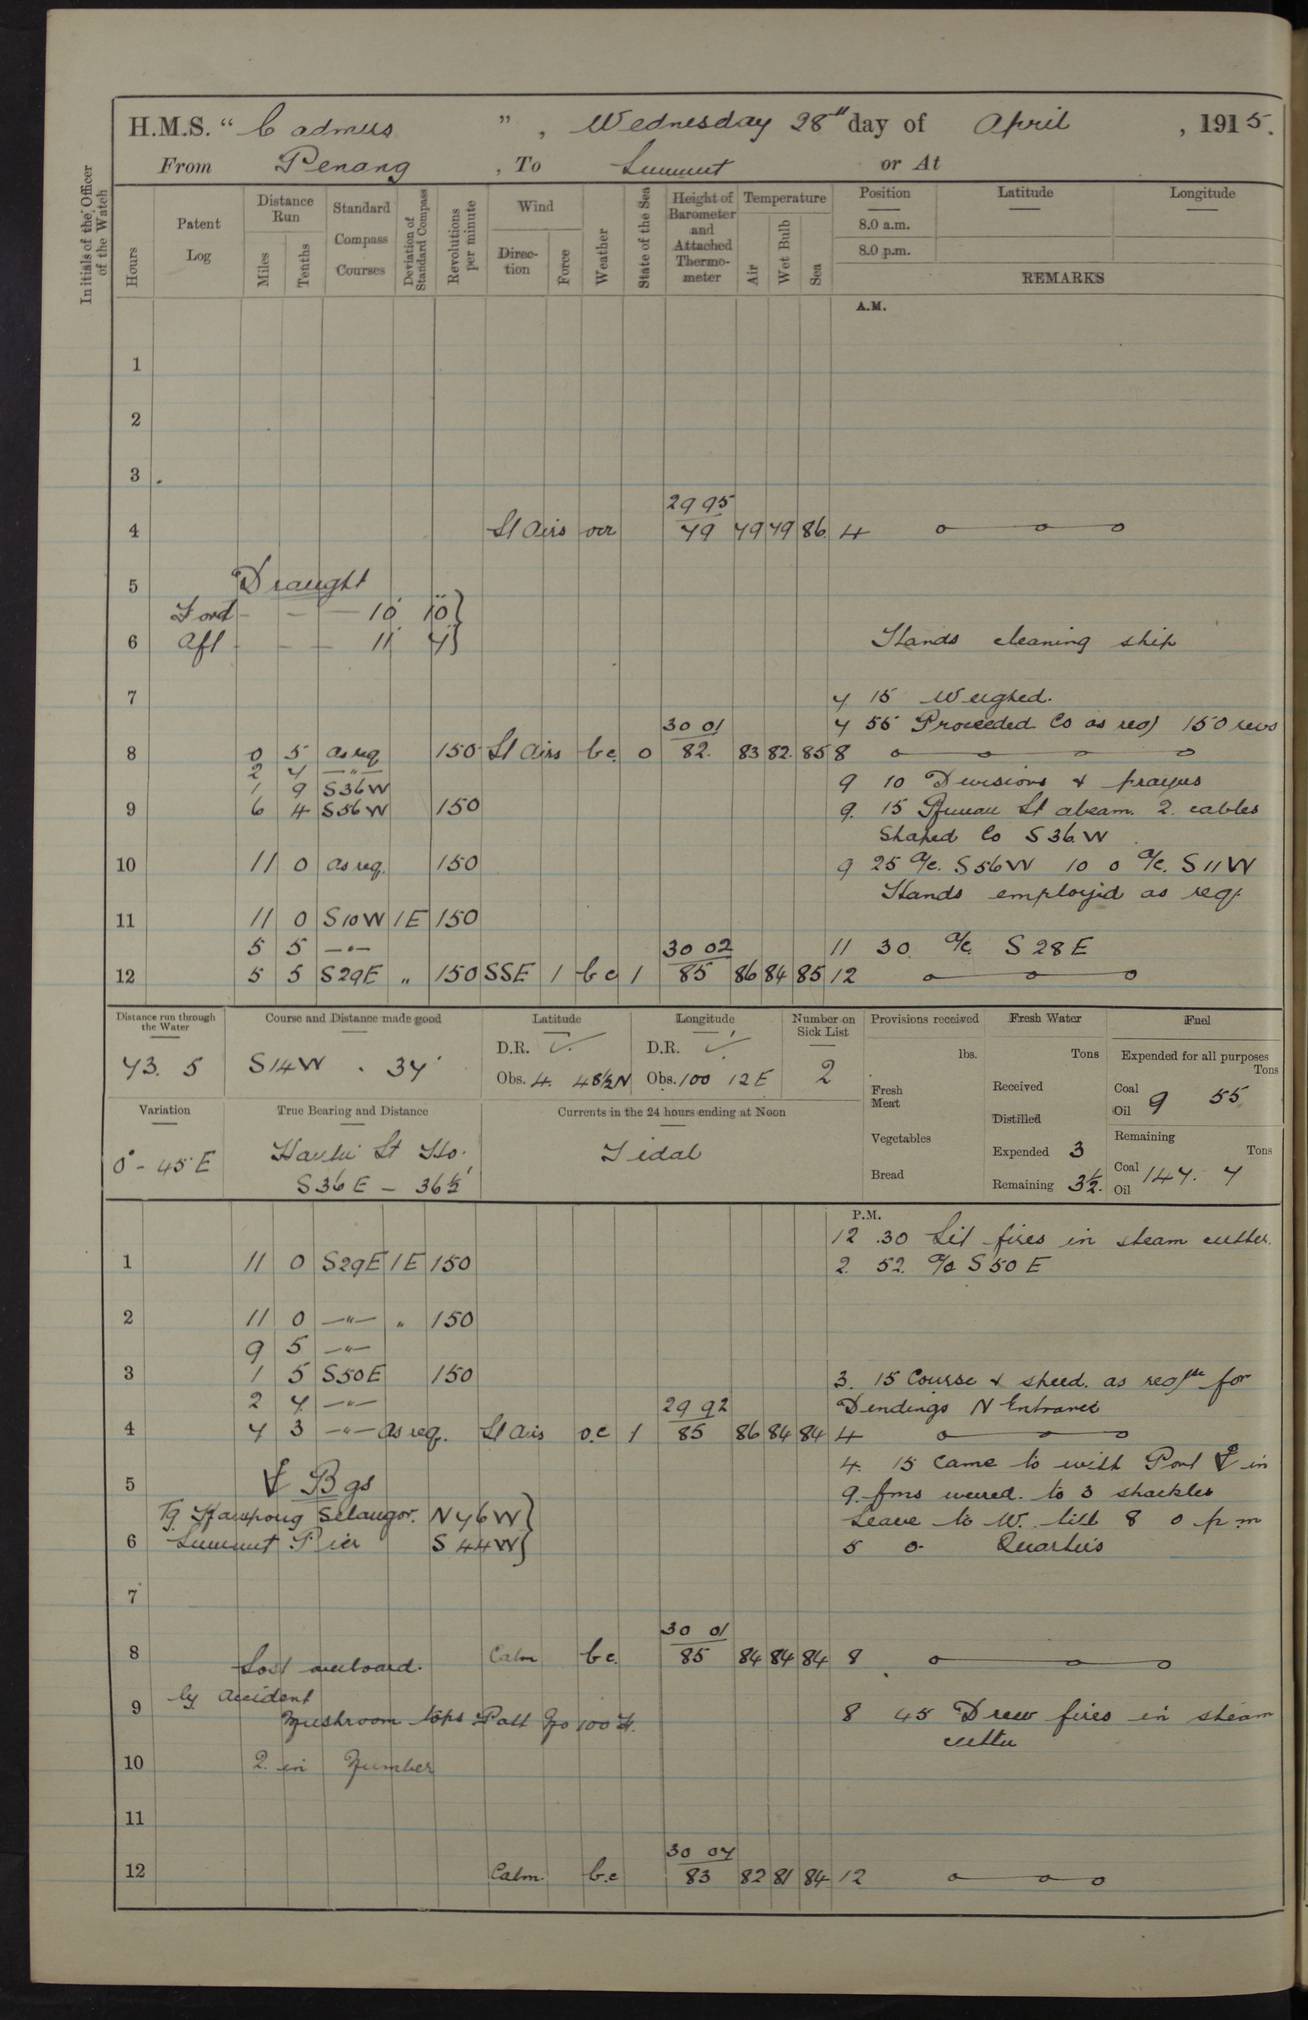 H.M.S. “ Cadmus ” , Wednesday 28th day of April , 1915.
From Penang , To Lumut or At
Initials of the Officer of the Watch
Hours
Patent Log
Distance Run
Miles
Tenths
Standard Compass Courses
Deviation of Standard Compass
Revolutions per minute
Wind
Direction
Force
Weather
State of the Sea
Height of Barometer and Attached Thermometer
Temperature
Air
Wet Bulb
Sea
Position
Latitude
Longitude
8.0 a.m.
8.0 p.m.
REMARKS
A.M.
1
2
3
29 95
4 Lt Airs ocr 79 79 79 86 4
5 Draught
Ford - - - 10' 10"
6 Aft - - - 11' 7" Hands cleaning ship
7 7 15 Weighed.
30 01 7 55 Proceeded Co as req 150 revs
8 0 5 as req 150 Lt Airs bc. 0 82. 83 82. 85 8
2 7 —"—
1 9 S36W 9 10 Divisions & prayers
9 6 4 S56W 150 9. 15 Lt abeam. 2. cables
Shaped Co S36.W
10 11 0 as req. 150 9 25 a/c. S56W 10 0 a/c. S11W
Hands employed as req.
11 11 0 S10W 1E 150
5 5 —"— 30 02 11 30. a/c S28E
12 5 5 S29E " 150 SSE 1 bc 1 85 86 84 85 12
Distance run through the Water
73. 5
Course and Distance made good
S14W . 37'
Latitude
D.R. ✓
Obs. 4. 48½N
Longitude
D.R. ✓
Obs. 100 12E
Number on Sick List
2
Provisions received
lbs.
Fresh Meat
Vegetables
Bread
Fresh Water
Tons
Received
Distilled
Expended 3
Remaining 3½.
Fuel
Expended for all purposes
Tons
Coal 9 55
Oil
Remaining
Tons
Coal 147. 7
Oil
Variation
0° - 45'E
True Bearing and Distance
Lt Ho.
S36E - 36½'
Currents in the 24 hours ending at Noon
Tidal
P.M.
12 .30 Lit fires in steam cutter.
1 11 0 S29E 1E 150 2. 52. a/c S50E
2 11 0 —"— " 150
9 5 —"—
3 1 5 S50E 150 3. 15 Course & speed. as reqte for
2 7 —"— 29 92 Dindings N Entrance
4 7 3 —"— as req. Lt Airs o.c 1 85 86 84 84 4
4. 15 Came to with Port ⚓ in
5 ⚓ Bgs 9. fms veered. to 3 shackles
Tg. Kampong Selangor. N76W Leave to W. till 8 0 p.m
6 Lumut Pier S44W 5 0 Quarters
7
30 01
8 Calm bc. 85 84 84 84 8
Lost overboard.
by accident
9 Mushroom tops Patt No 100 8 45 Drew fires in steam
cutter
10 2. in Number
11
30 04
12 Calm. b.c 83 82 81 84 12